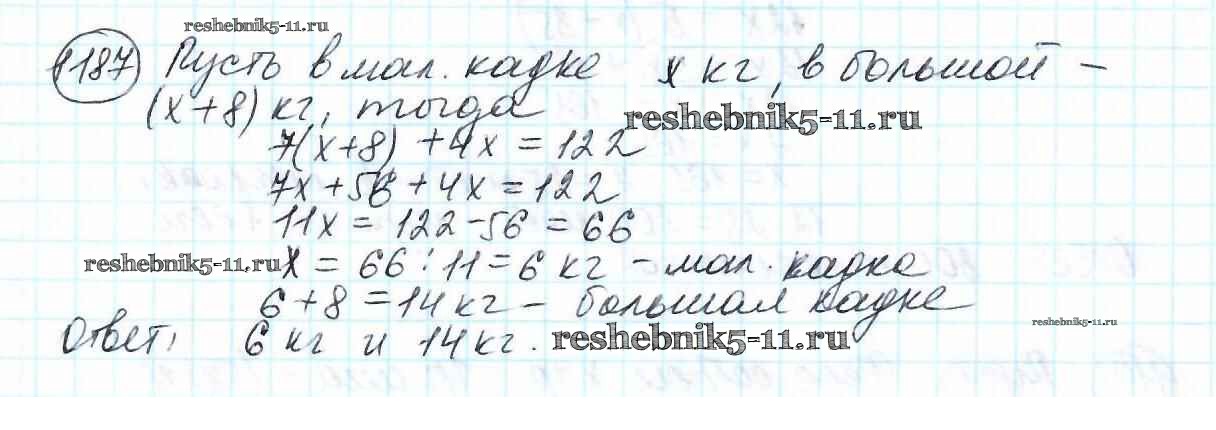 reshebnik5-11.ru
1187 Пусть в мал. кадке x кг, в большой –
(x+8) кг, тогда reshebnik5-11.ru
7(x+8) + 4x = 122
7x + 56 + 4x = 122
11x = 122 - 56 = 66
reshebnik5-11.ru x = 66 : 11 = 6 кг – мал. кадка
6 + 8 = 14 кг – большая кадке
reshebnik5-11.ru
Ответ: 6 кг и 14 кг. reshebnik5-11.ru